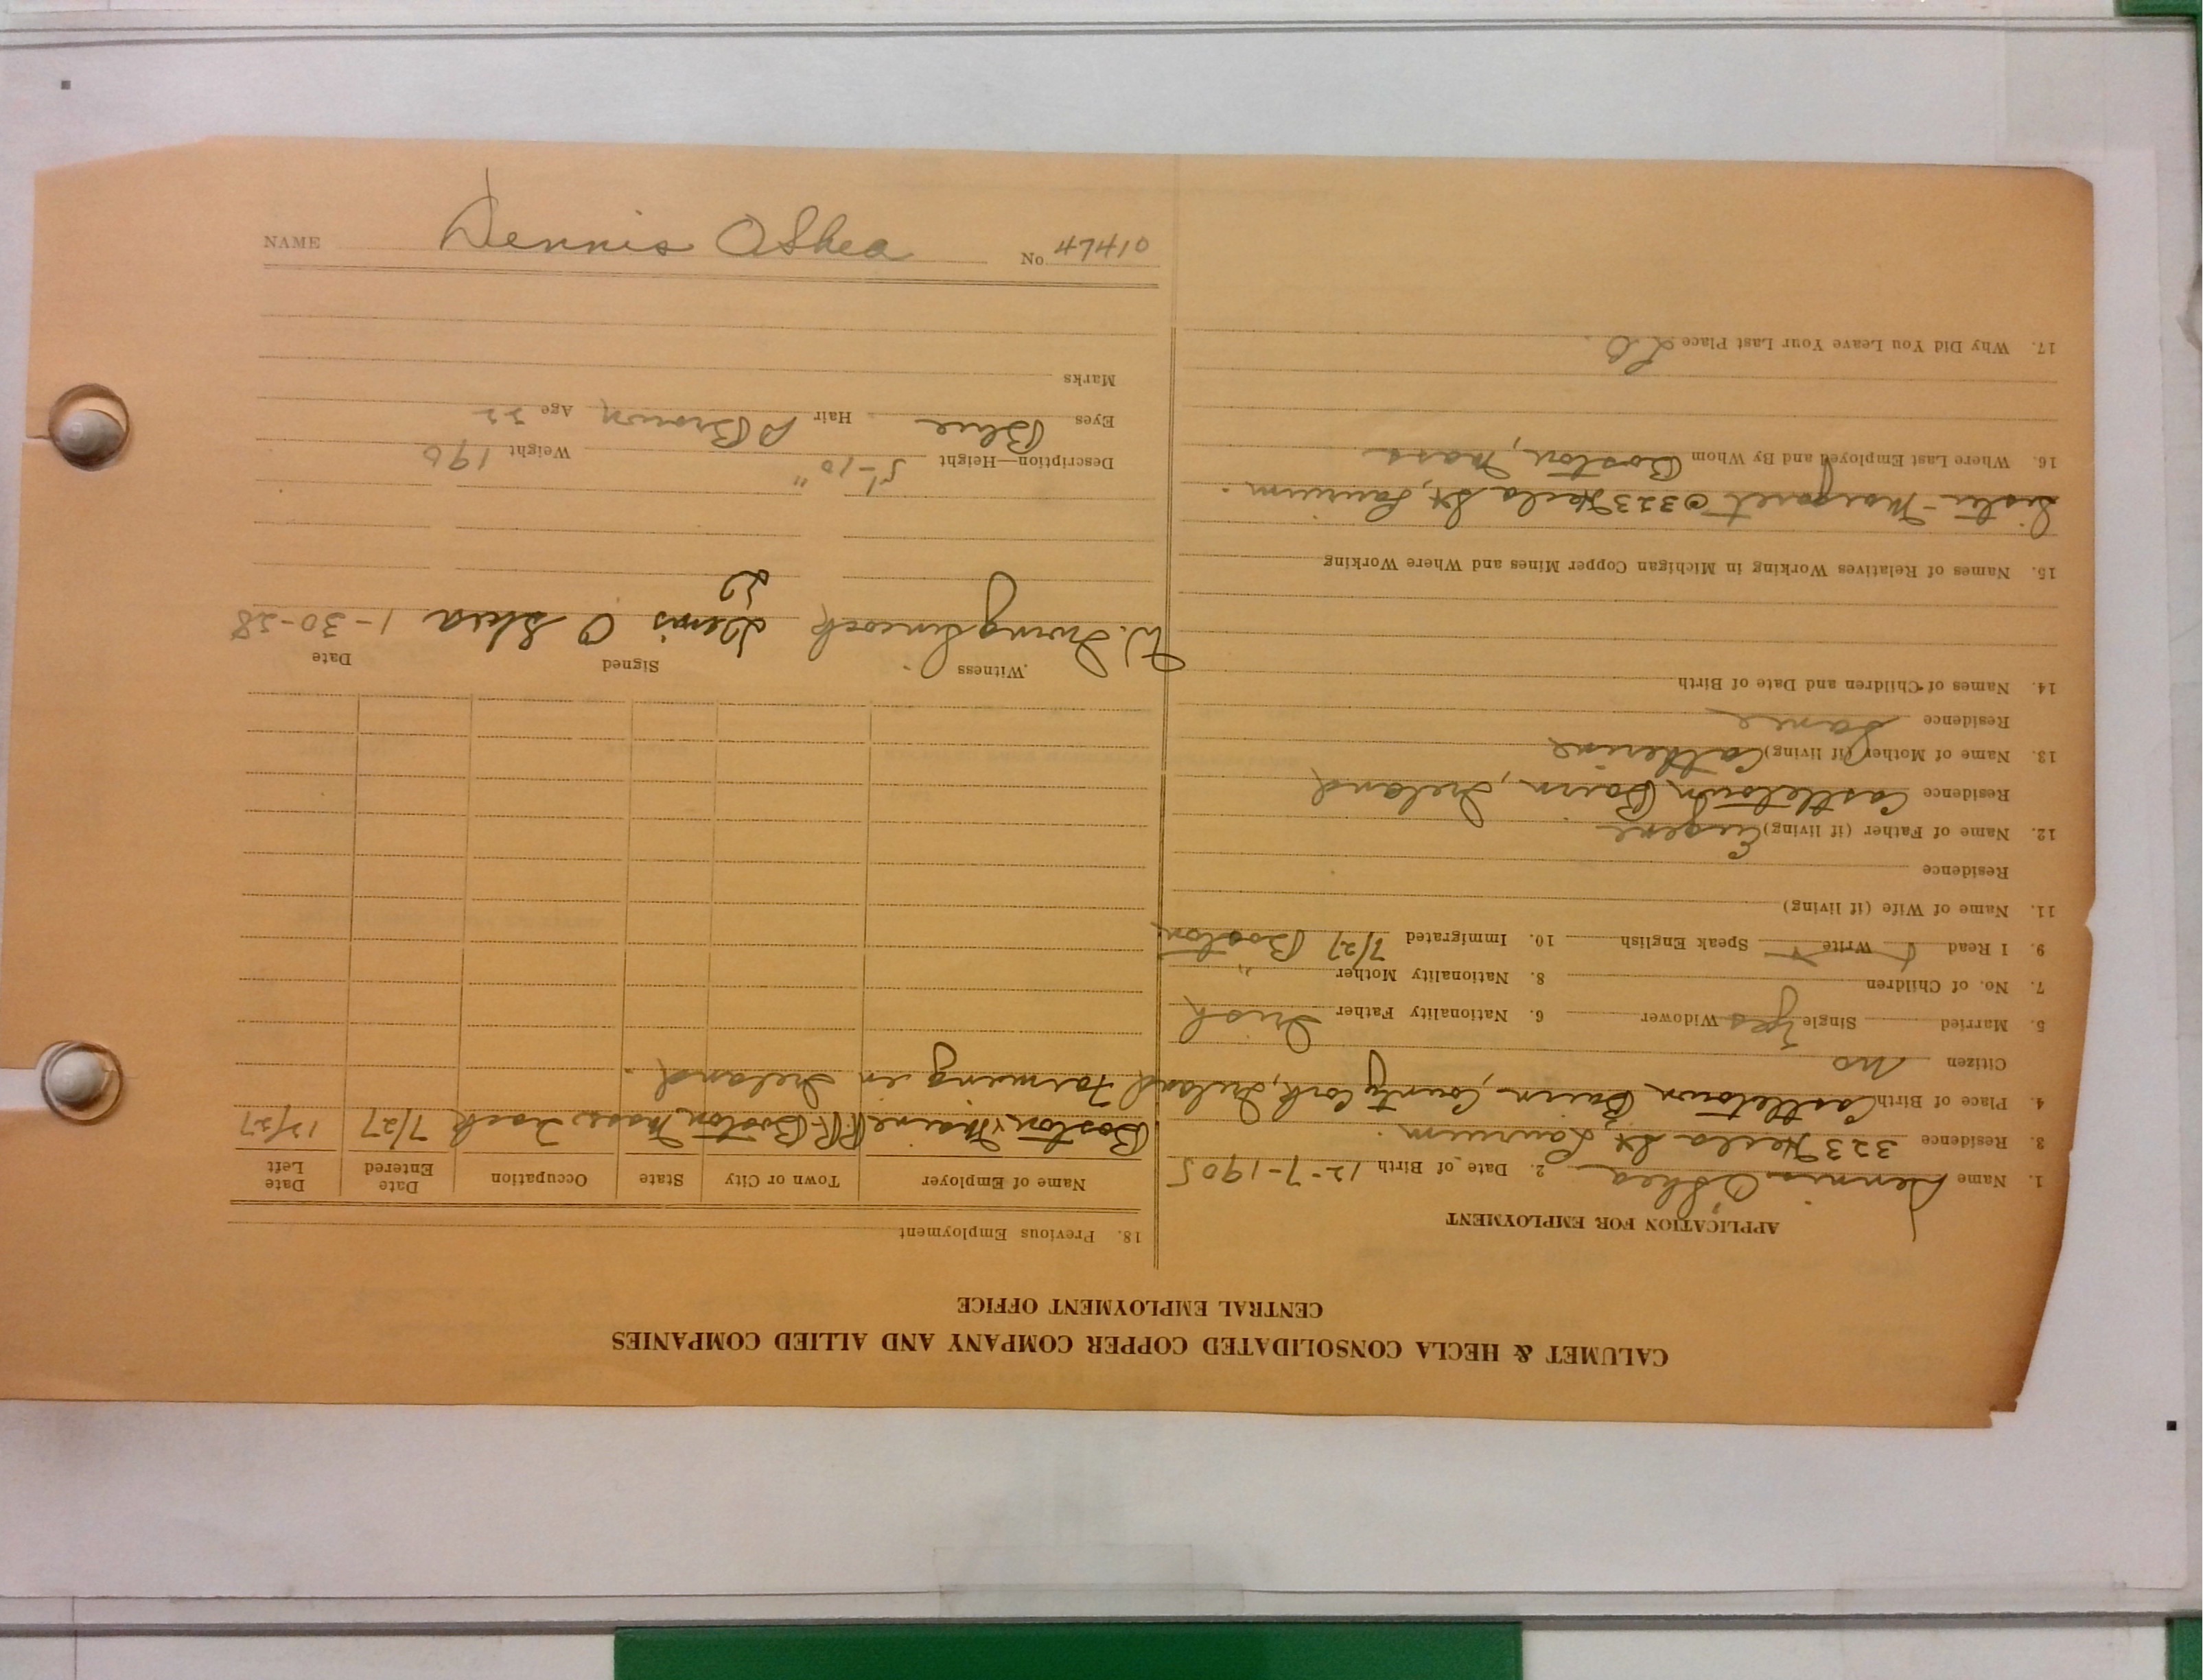 CALUMET & HECLA CONSOLIDATED COPPER COMPANY AND ALLIED COMPANIES
CENTRAL EMPLOYMENT OFFICE
APPLICATION FOR EMPLOYMENT
1. Name Dennis O'Shea 2. Date of Birth 12-7-1905
3. Residence 323 Hecla St, Laurium.
4. Place of Birth Castletown Bairn, County Cork, Ireland
Citizen no
5. Married Single yes Widower 6. Nationality Father Irish
7. No. of Children 8. Nationality Mother "
9. I Read Write Speak English 10. Immigrated 7/27 Boston
11. Name of Wife (if living)
Residence
12. Name of Father (if living) Eugene
Residence Castletown Bairn, Ireland
13. Name of Mother (if living) Catherine
Residence Same
14. Names of Children and Date of Birth
15. Names of Relatives Working in Michigan Copper Mines and Where Working
Sister - Margaret @ 323 Hecla St, Laurium.
16. Where Last Employed and By Whom Boston, Mass
17. Why Did You Leave Your Last Place
18. Previous Employment
Name of Employer Town or City State Occupation Date Entered Date Left
Boston & Maine RR. Boston Mass 7/27 12/27
Farming in Ireland.
Witness Signed Date
W. Irving Denis O Shea 1-30-28
Description—Height 5'-10" Weight 190
Eyes Blue Hair Brown Age 22
Marks
NAME Dennis OShea No. 47410